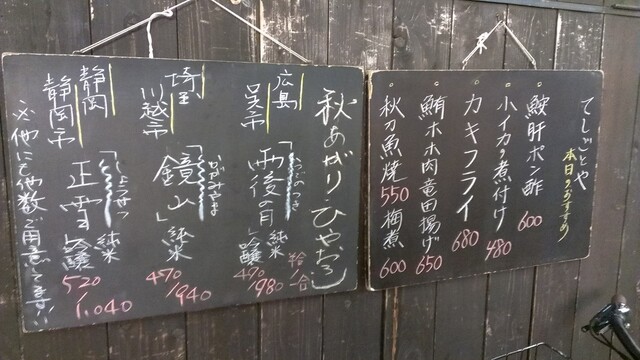 てしごとや
本日のおすすめ
鮟肝ポン酢 600
小イカの煮付け 480
カキフライ 680
鮪ホホ肉竜田揚げ 650
秋刀魚焼 550 梅煮 600
秋あがり・ひやおろし
広島
呉市
「雨後の月」
うごのつき
純米
吟醸
半合/一合
490/980
埼玉
川越市
「鏡山」
かがみやま
純米
470/940
静岡
静岡市
「正雪」
しょうせつ
純米
吟醸
520/1,040
※他にも多数ご用意してます!!